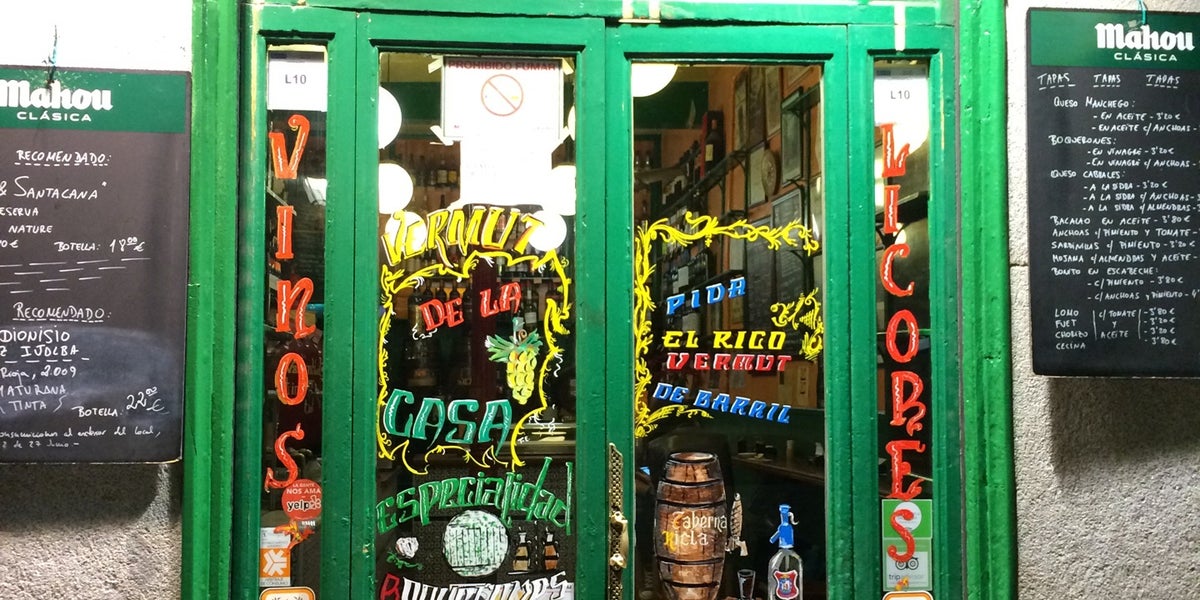 Mahou
CLÁSICA
RECOMENDADO:
& SANTACANA"
NATURE
BOTELLA: 18'00 €
RECOMENDADO:
DIONISIO
RIOJA, 2.009
MATURANA
TINTA
BOTELLA: 22'00 €
consumiciones al exterior del local,
2 de 27 Junio-
L10
VINOS
LA GENTE
NOS AMA
yelp
PROHIBIDO FUMAR
VERMUT
DE LA
CASA
especialidad
BOQUERONES
PIDA
EL RICO
VERMUT
DE BARRIL
Taberna
Ricla
L10
LICORES
tripadvisor
Mahou
CLÁSICA
TAPAS TAPAS TAPAS
QUESO MANCHEGO:
- EN ACEITE - 3'20 €
- EN ACEITE C/ANCHOAS -
BOQUERONES:
- EN VINAGRE - 3'20 €
- EN VINAGRE C/ANCHOAS -
QUESO CABRALES:
- A LA SIDRA - 3'20 €
- A LA SIDRA C/ANCHOAS
- A LA SIDRA C/ALMENDRAS - 3
BACALAO EN ACEITE - 3'80 €
ANCHOAS C/PIMIENTO Y TOMATE -
SARDINILLAS C/ PIMIENTO - 3'20
MOJAMA C/ALMENDRAS Y ACEITE -
BONITO EN ESCABECHE:
- C/PIMIENTO - 3'80 €
- C/ANCHOAS Y PIMIENTO -
LOMO C/TOMATE - 3'80 €
FUET Y - 3'20 €
CHORIZO ACEITE - 3'20 €
CECINA - 3'80